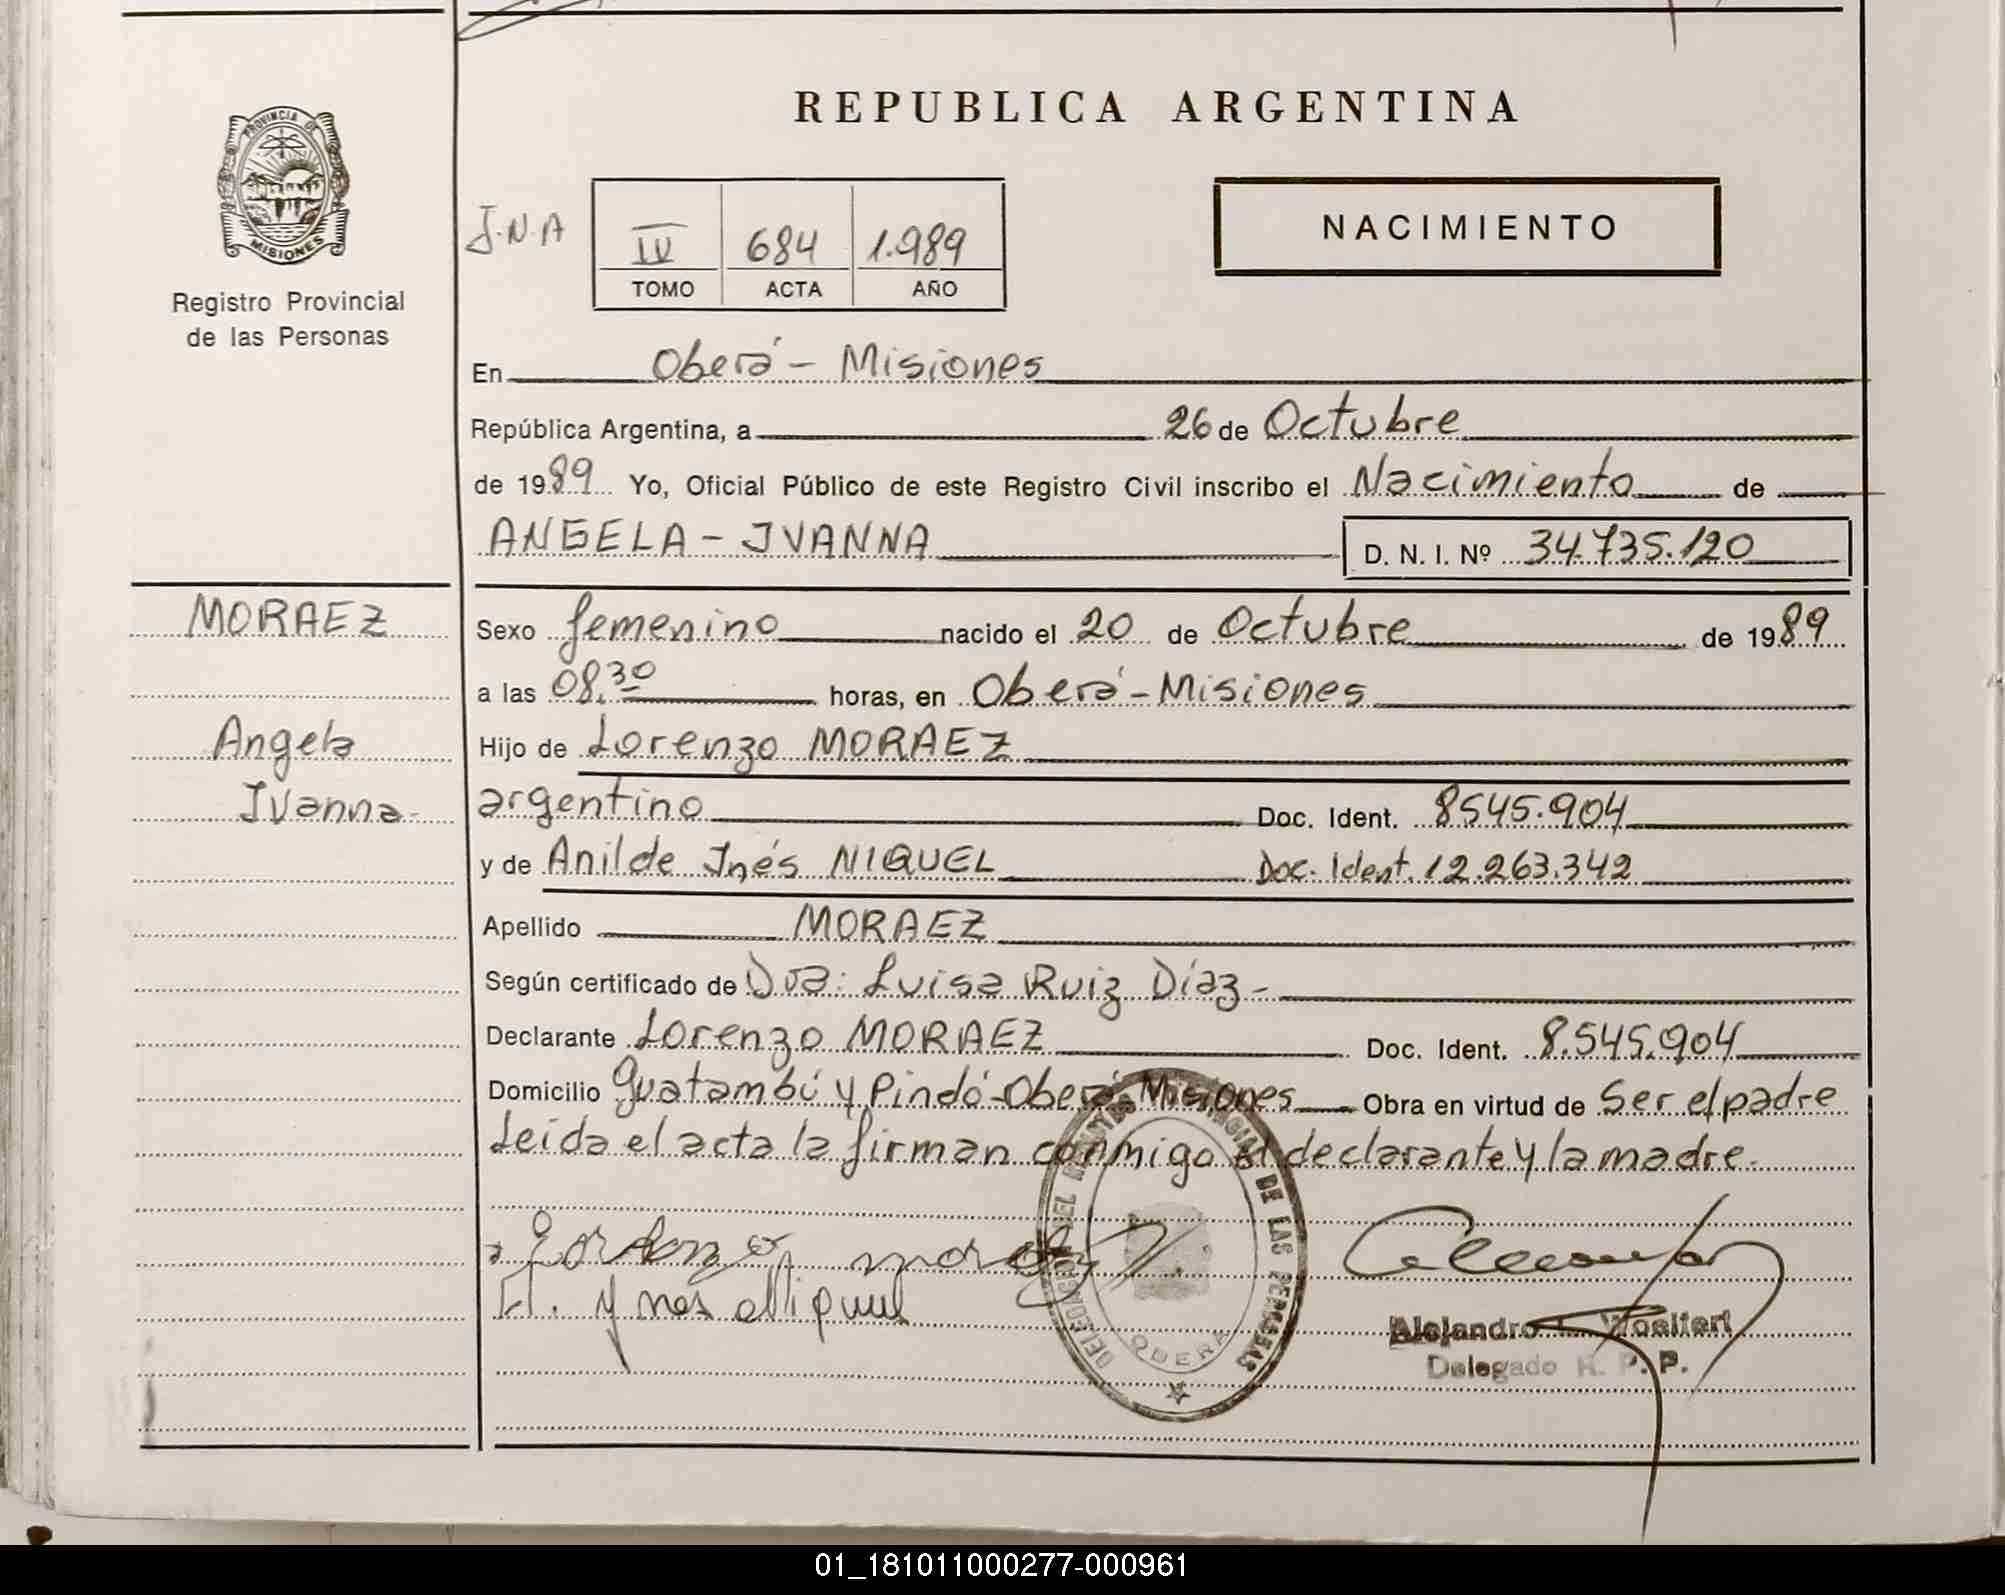 REPUBLICA ARGENTINA
PROVINCIA DE
MISIONES
Registro Provincial
de las Personas
J.N.A
IV 684 1.989
TOMO ACTA AÑO
NACIMIENTO
En Oberá - Misiones
República Argentina, a 26 de Octubre
de 1989 Yo, Oficial Público de este Registro Civil inscribo el Nacimiento de
ANGELA - IVANNA D. N. I. Nº 34.735.120
MORAEZ
Angela
Ivanna-
Sexo femenino nacido el 20 de Octubre de 1989
a las 08,30 horas, en Oberá - Misiones
Hijo de Lorenzo MORAEZ
argentino Doc. Ident. 8545.904
y de Anilde Inés NIQUEL Doc. Ident. 12.263.342
Apellido MORAEZ
Según certificado de Dra: Luisa Ruiz Díaz -
Declarante Lorenzo MORAEZ Doc. Ident. 8.545.904
Domicilio Guatambú y Pindó - Oberá - Misiones Obra en virtud de Ser el padre
Leída el acta la firman conmigo el declarante y la madre.
DE LAS PERSONAS
OBERA
Alejandro Woelfert
Delegado R. P. P.
01_181011000277-000961